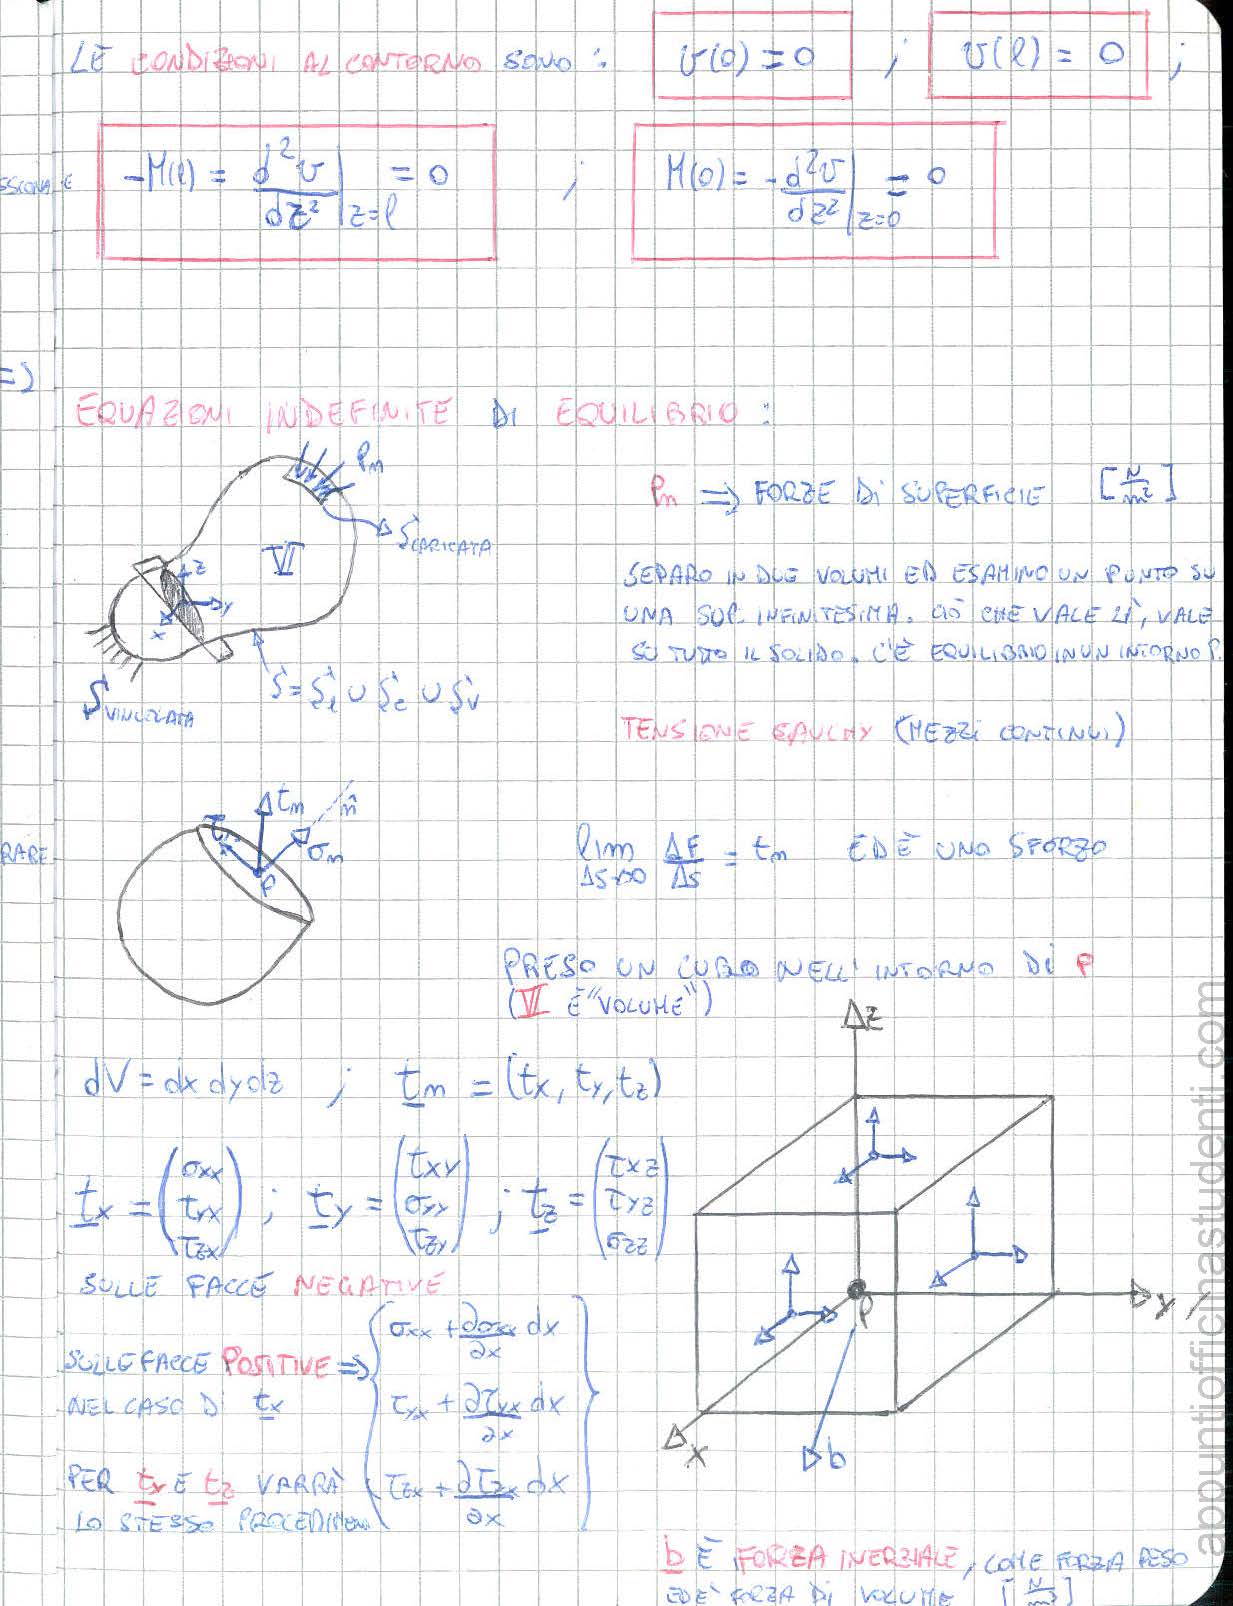 LE CONDIZIONI AL CONTORNO SONO : v(0) = 0 ; v(l) = 0 ;
-M(l) = d²v/dz² |z=l = 0 ; M(0) = -d²v/dz² |z=0 = 0
=>
EQUAZIONI INDEFINITE DI EQUILIBRIO :
Pn
Pn => FORZE DI SUPERFICIE [N/m²]
S CARICATA
VI
z
y
x
SEPARO IN DUE VOLUMI ED ESAMINO UN PUNTO SU
UNA SUP. INFINITESIMA. CIÒ CHE VALE LÌ, VALE
SU TUTTO IL SOLIDO. C'È EQUILIBRIO IN UN INTORNO P.
S = Sl ∪ Sc ∪ Sv
S VINCOLATA
TENSIONE CAUCHY (MEZZI CONTINUI)
tn
n̂
τn
σn
P
RARE
lim ΔS→0 ΔF/ΔS = tn ED È UNO SFORZO
PRESO UN CUBO NELL'INTORNO DI P
(VI È "VOLUME")
z
dV = dx dy dz ; tn = (tx, ty, tz)
tx = (σxx τyx τzx) ; ty = (τxy σyy τzy) ; tz = (τxz τyz σzz)
SULLE FACCE NEGATIVE
P
y
SULLE FACCE POSITIVE =>
NEL CASO DI tx
σxx + ∂σxx/∂x dx
τyx + ∂τyx/∂x dx
τzx + ∂τzx/∂x dx
x
b
PER ty E tz VARRÀ
LO STESSO PROCEDIMENTO
b È FORZA INERZIALE, COME FORZA PESO
ED È FORZA DI VOLUME [N/m³]
appuntiofficinastudenti.com